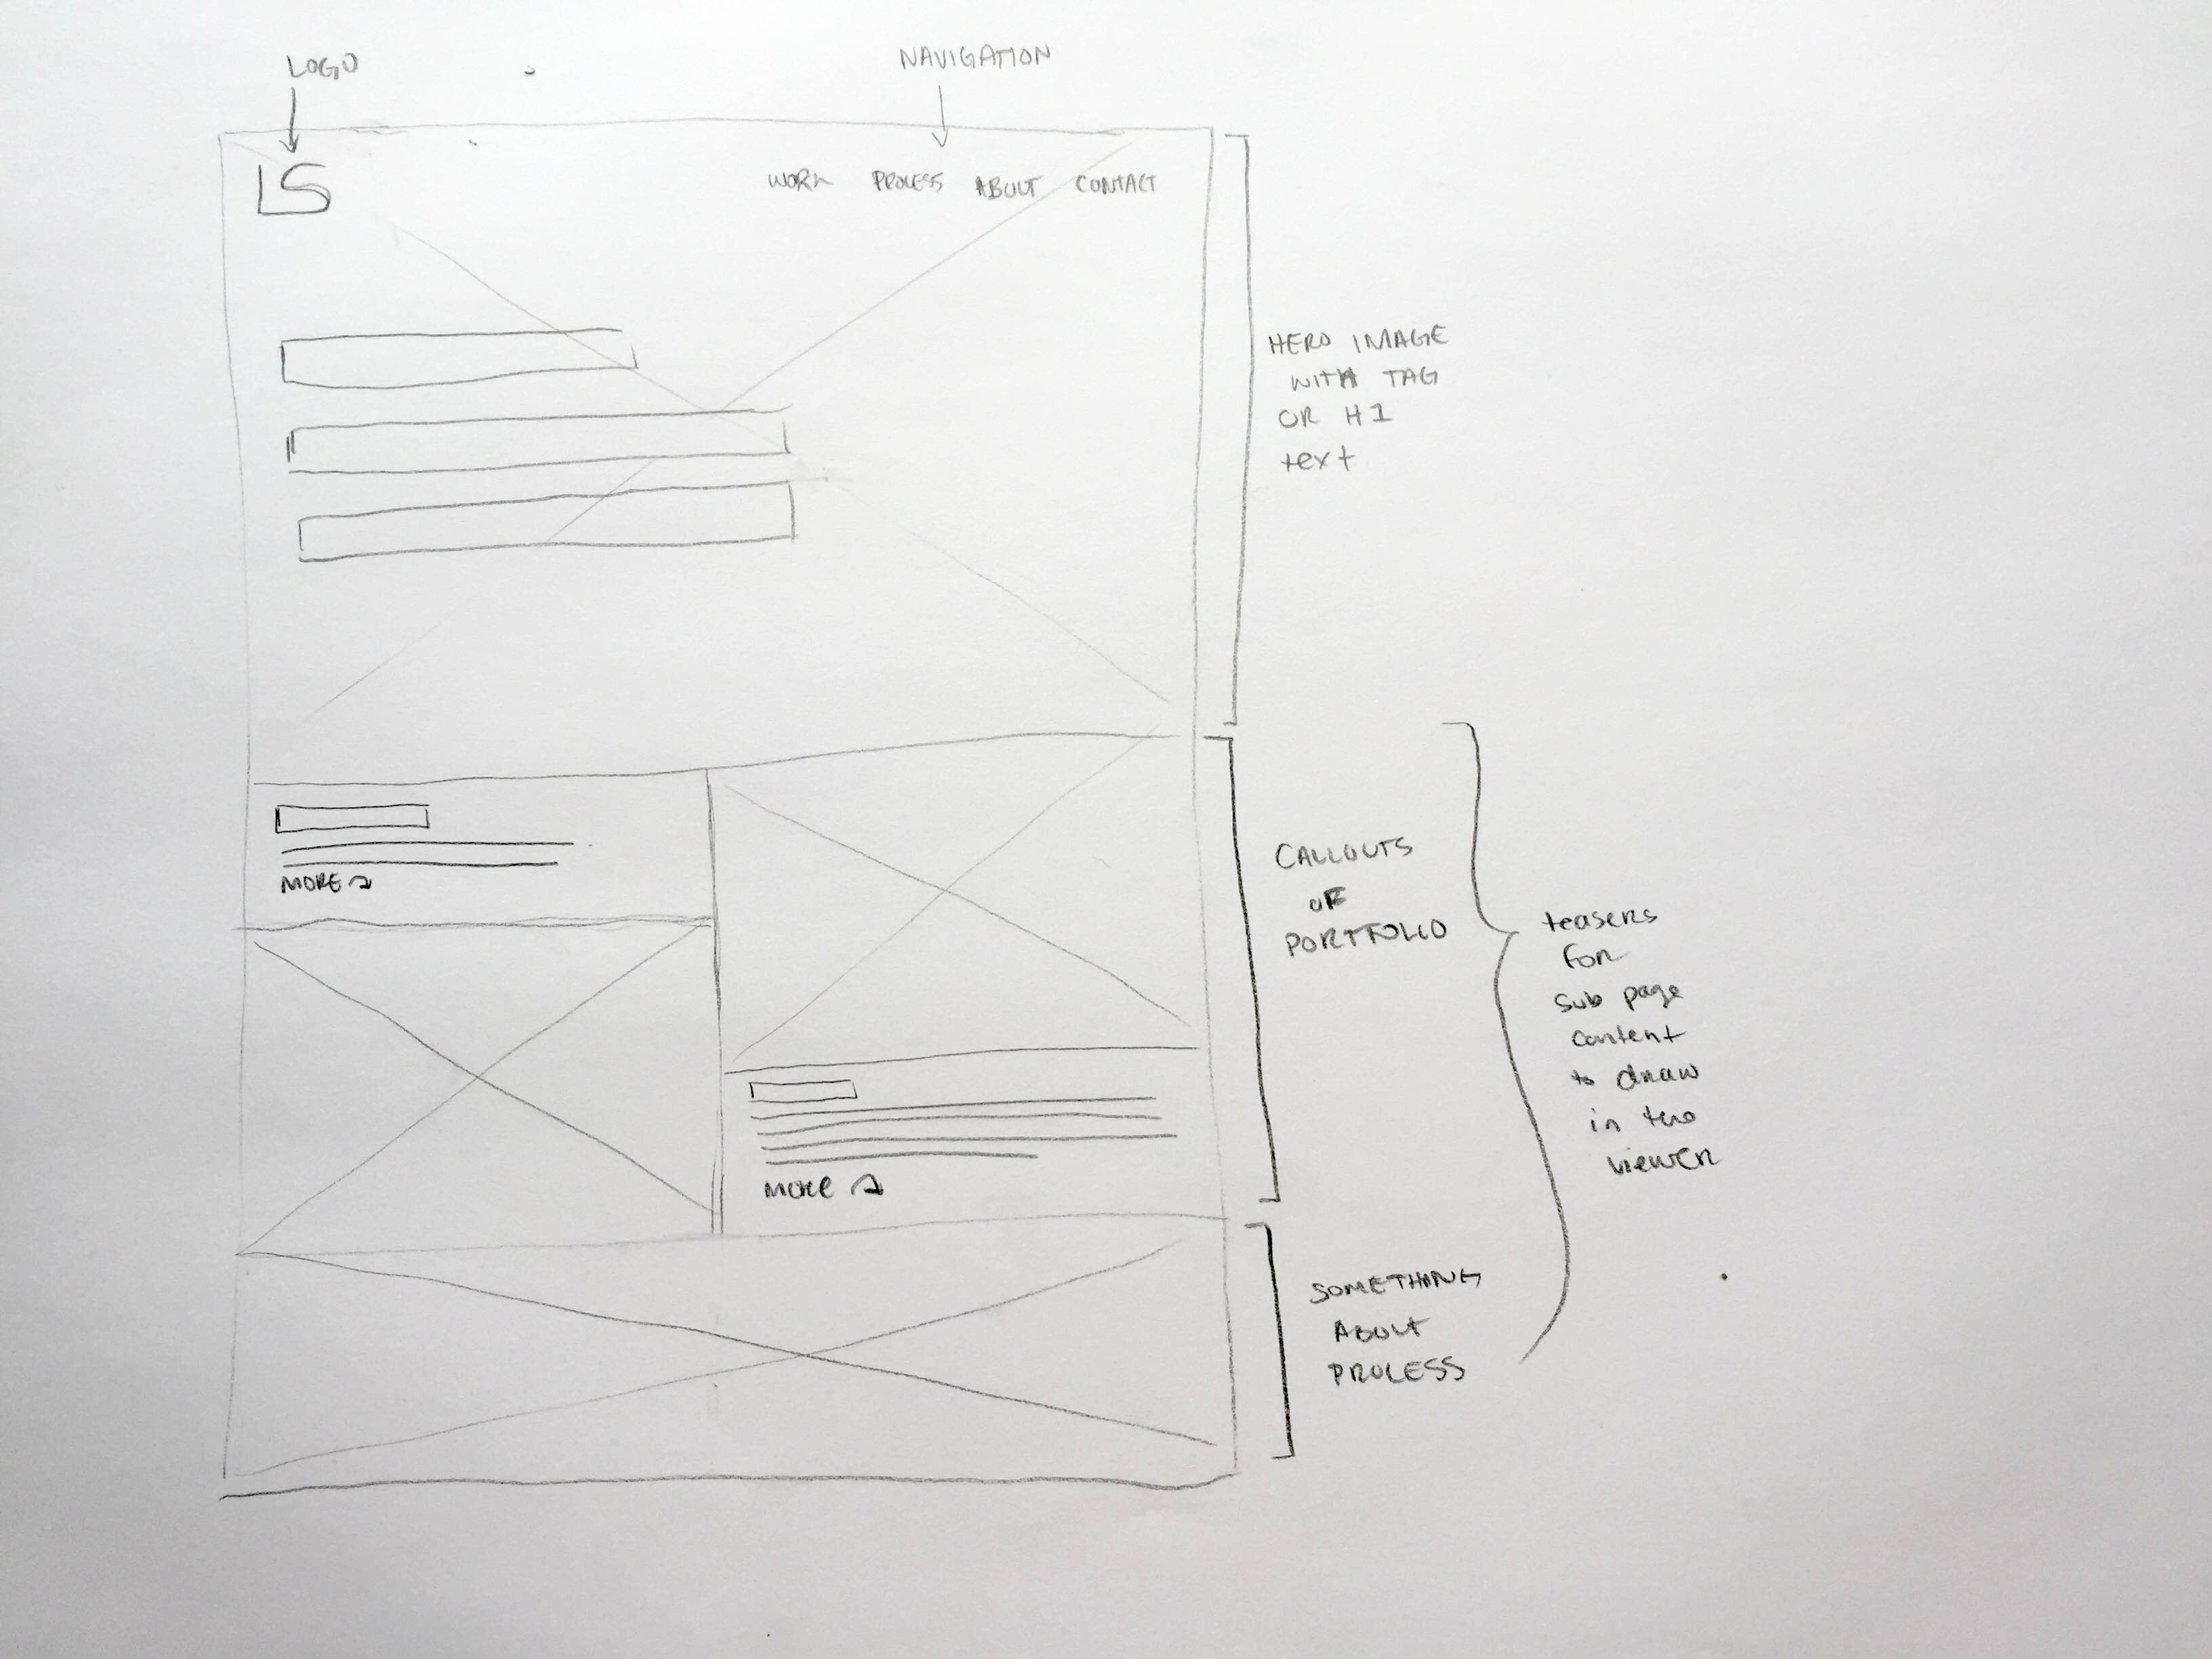 LOGO
NAVIGATION
LS
WORK PROCESS ABOUT CONTACT
HERO IMAGE
WITH TAG
OR H1
text
MORE
CALLOUTS
OF
PORTFOLIO
MORE
teasers
for
sub page
content
to draw
in the
viewer
SOMETHING
ABOUT
PROCESS